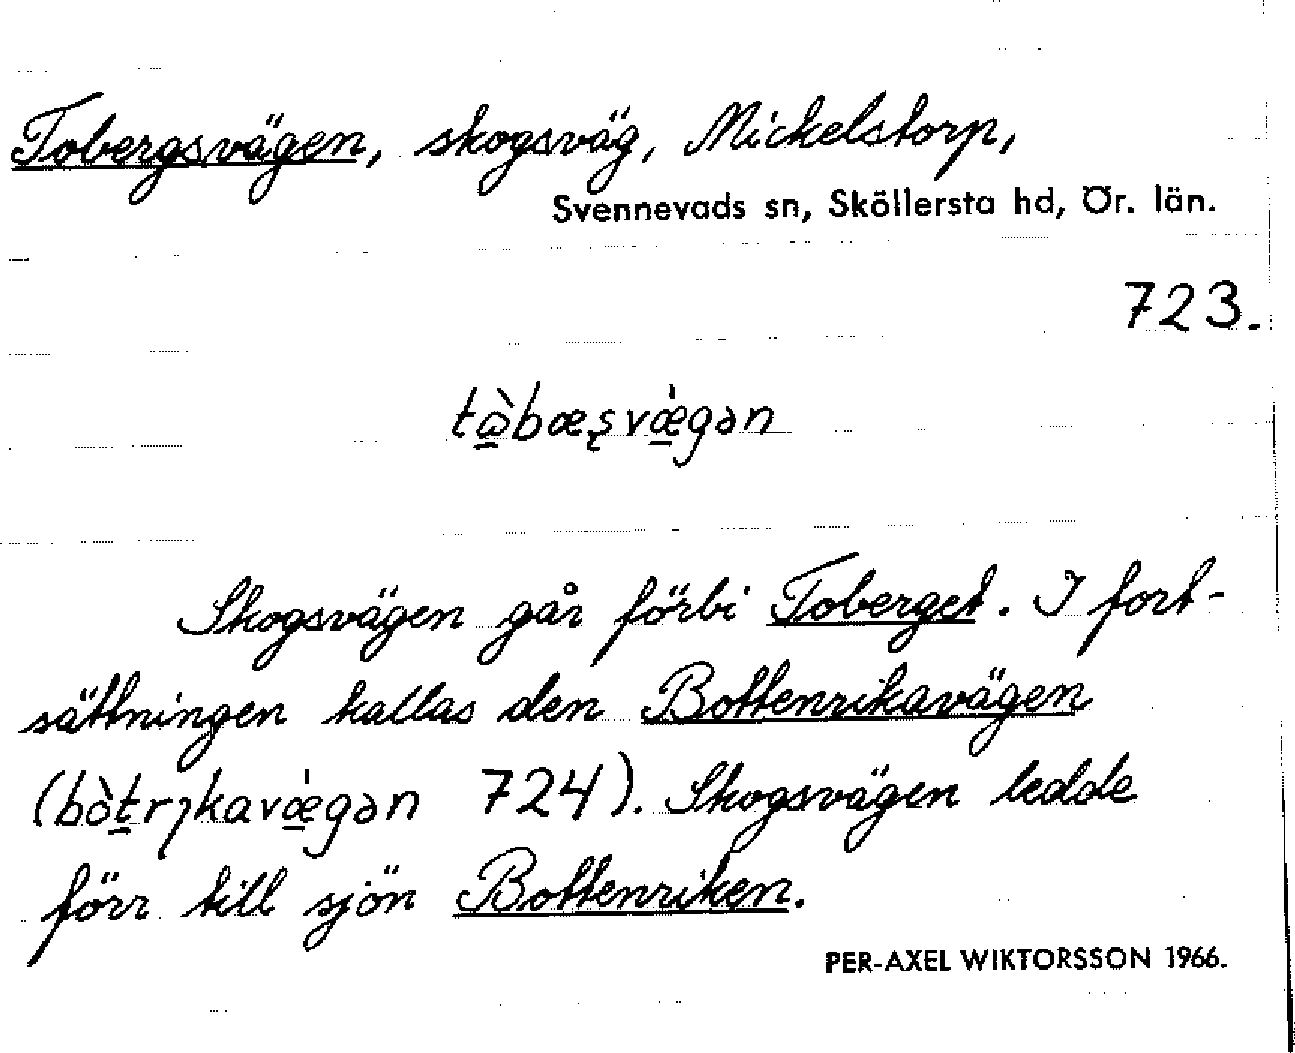 Tobergsvägen, skogsväg, Mickelstorp,
Svennevads sn, Sköllersta hd, Ör. län.
723.
tὼ̲bæʂvæ̲̀gən
Skogsvägen går förbi Toberget. I fort-
sättningen kallas den Bottenrikavägen
(bòt̲rıkavæ̲̀gən 724). Skogsvägen ledde
förr till sjön Bottenriken.
PER-AXEL WIKTORSSON 1966.